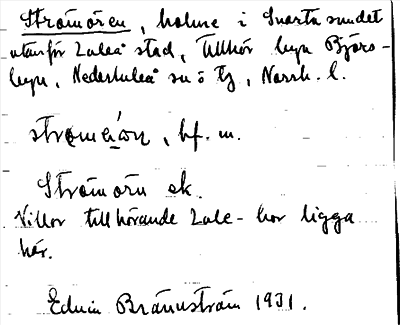 Strömören, holme i Svartö sundet
utanför Luleå stad, Tillhör byn Björs-
byn, Nederluleå sn ö tg, Norrb. l.
strømǿɹn, bf. m.
Strömörn ek.
Villor tillhörande Lule-bor ligga
här.
Edvin Brännström 1931.